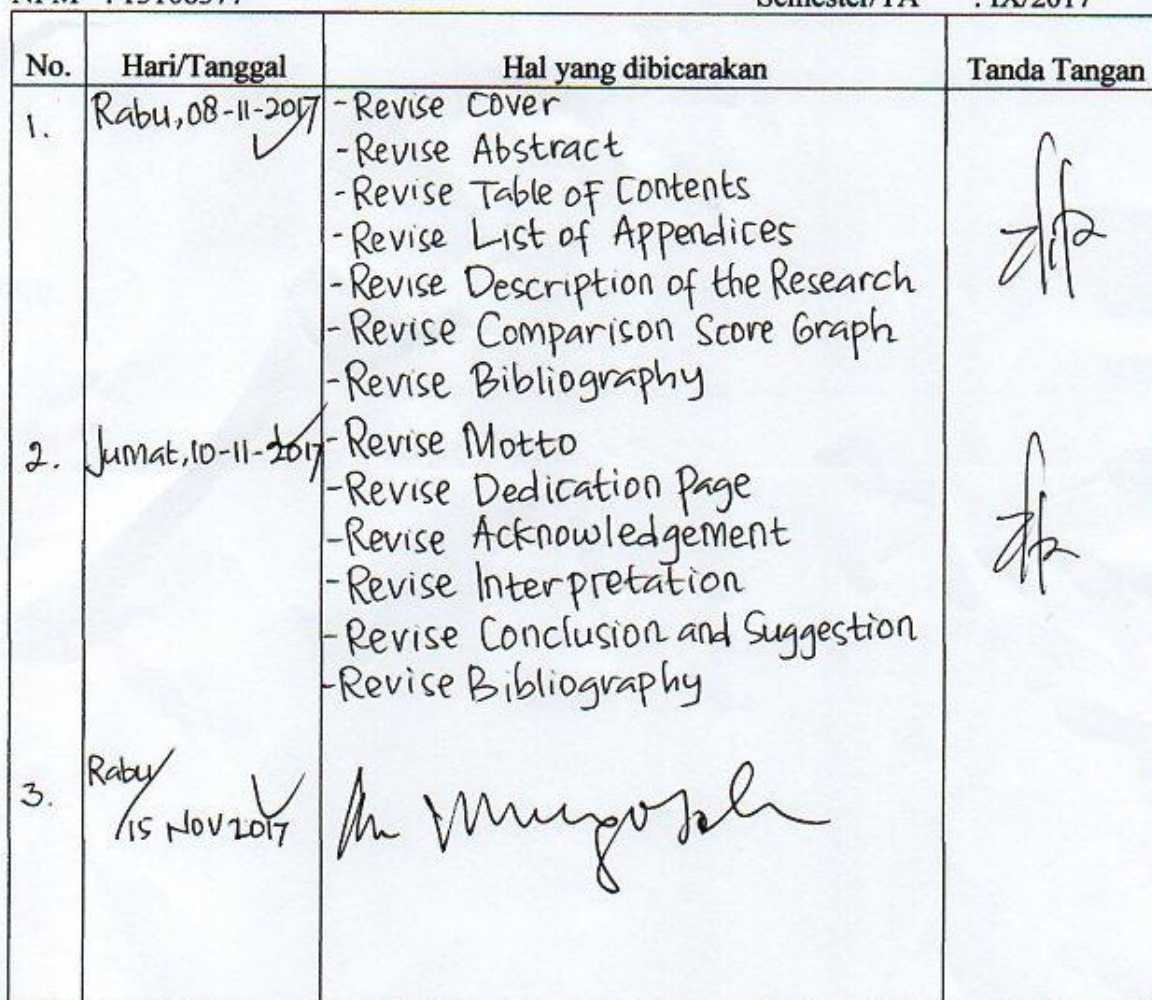 No. Hari/Tanggal Hal yang dibicarakan Tanda Tangan
1. Rabu, 08-11-2017 - Revise Cover
- Revise Abstract
- Revise Table of Contents
- Revise List of Appendices
- Revise Description of the Research
- Revise Comparison Score Graph
- Revise Bibliography
2. Jumat, 10-11-2017 - Revise Motto
- Revise Dedication Page
- Revise Acknowledgement
- Revise Interpretation
- Revise Conclusion and Suggestion
- Revise Bibliography
3. Rabu/
15 Nov 2017